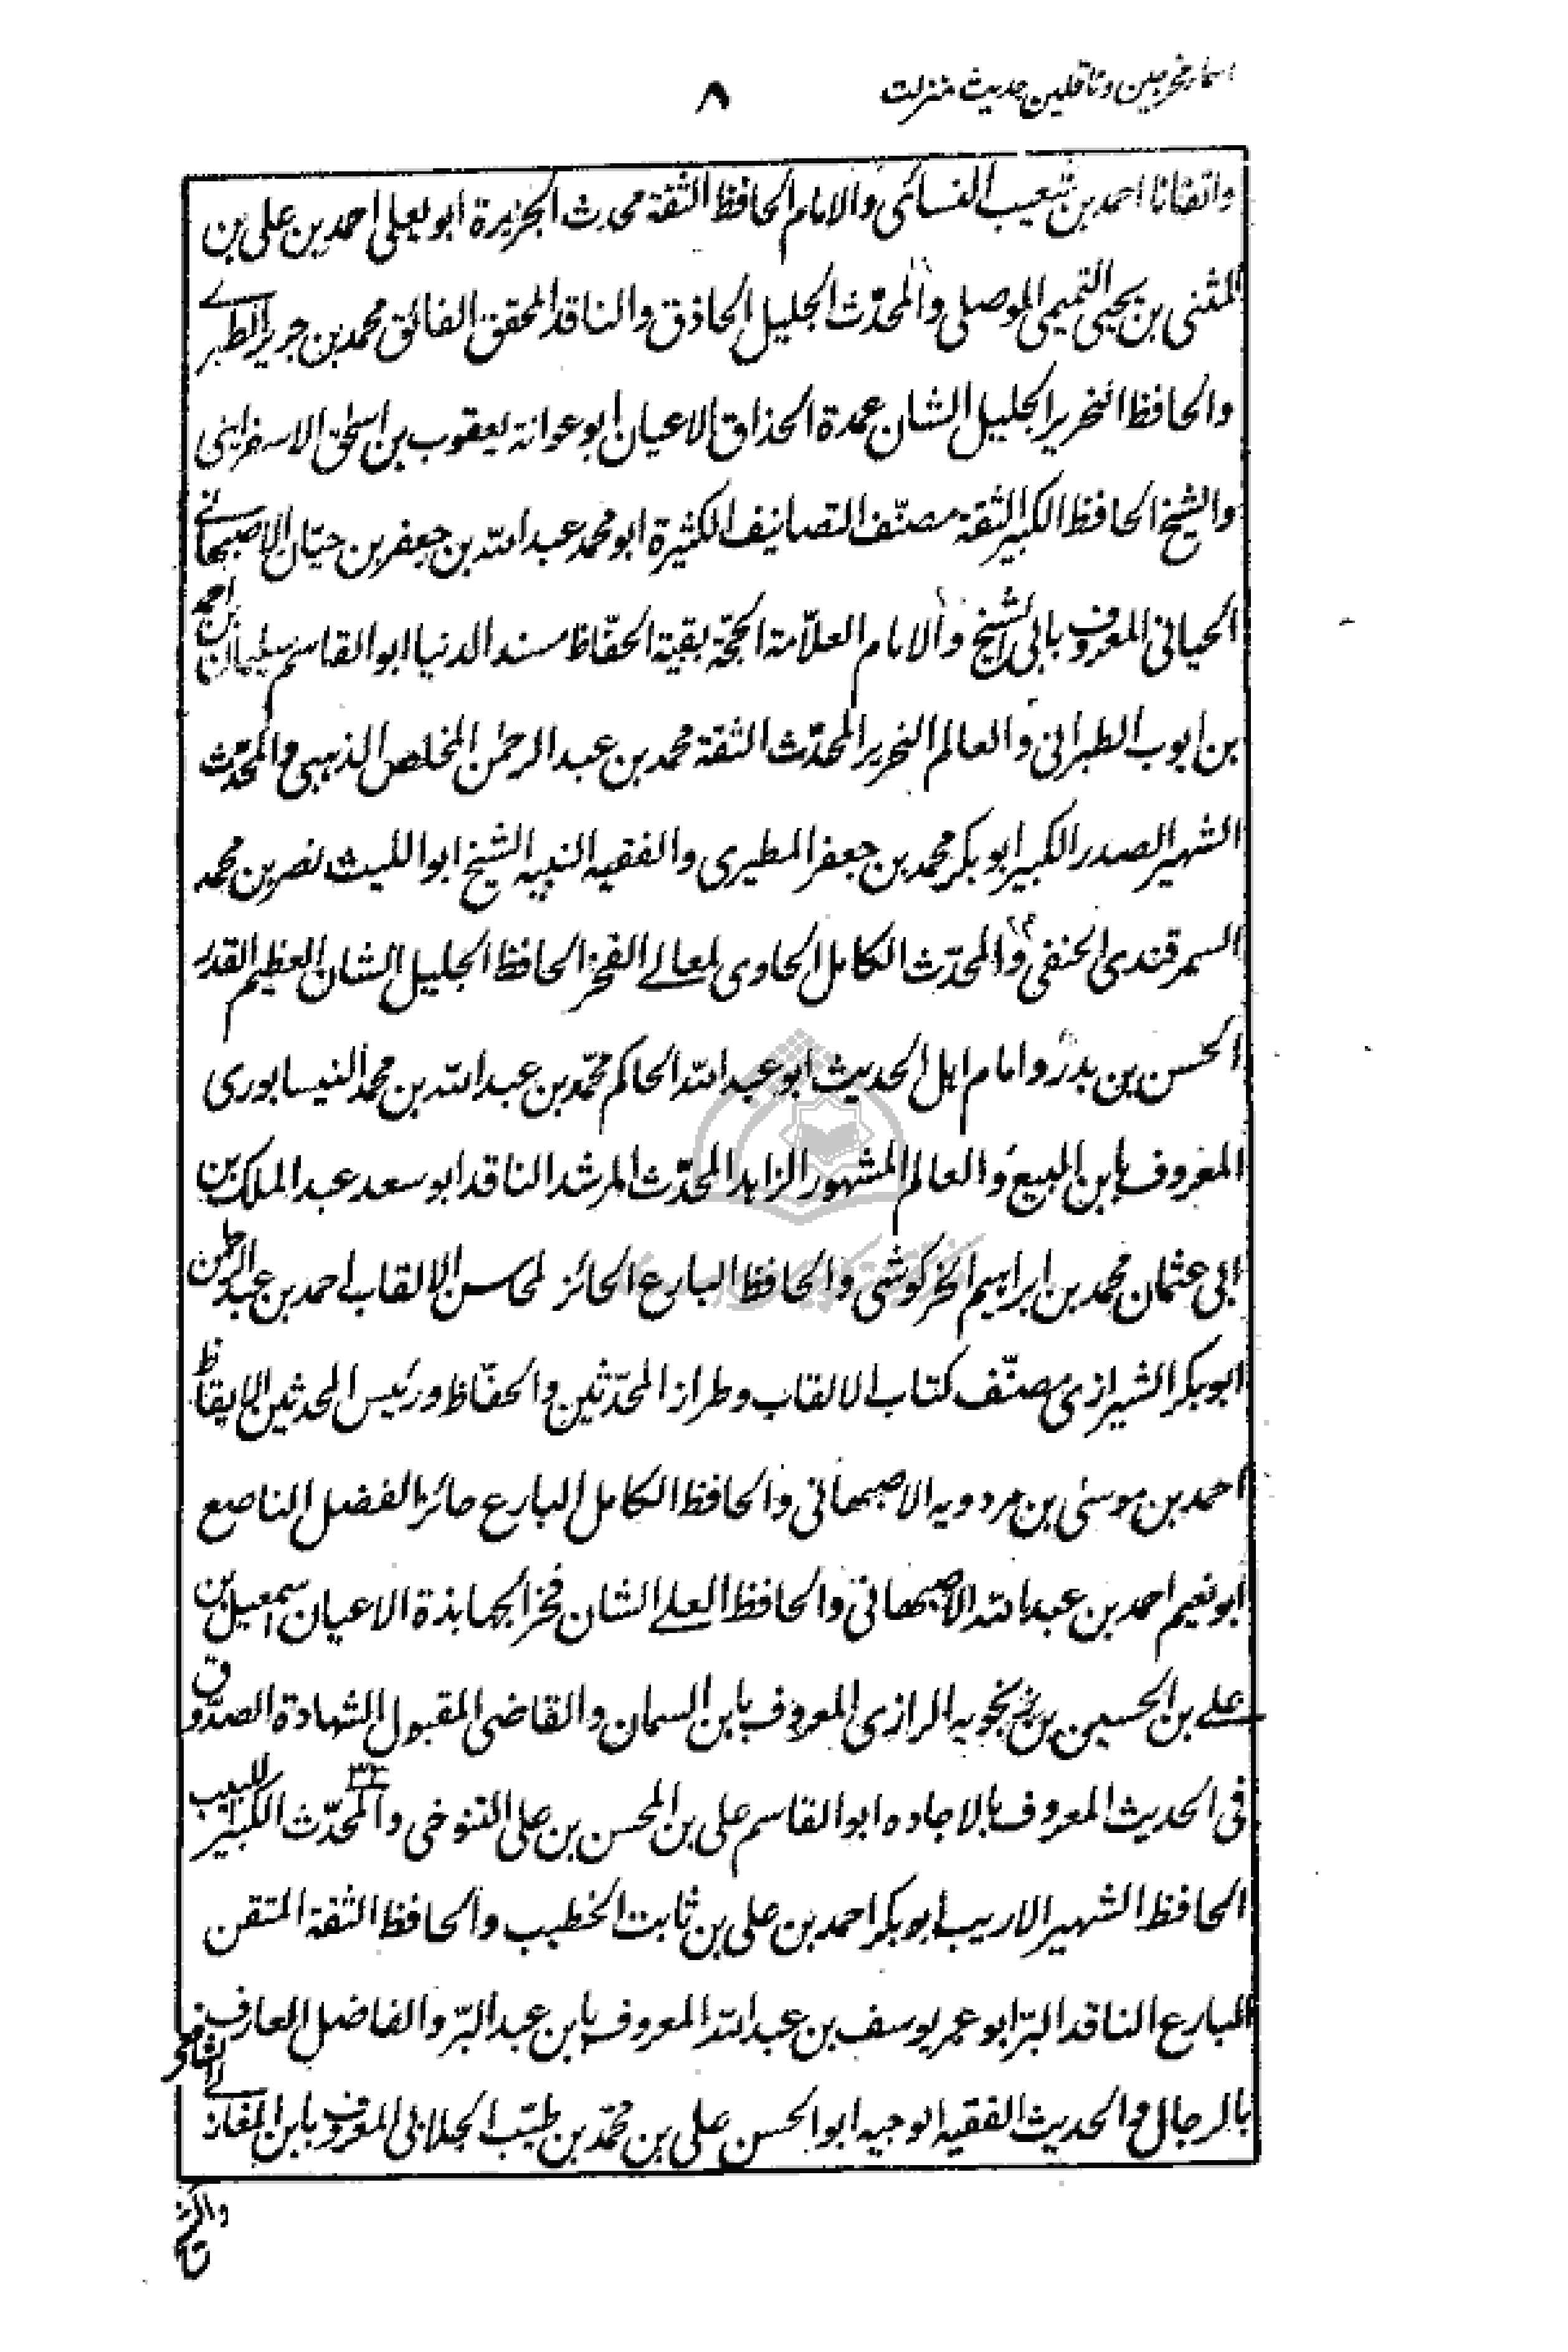 اسمار مخرجین و ناقلین حدیث منزلت
۸
واتقانا احمد بن شعیب النسائی والامام الحافظ الثقة محدث الجزیرة ابو یعلی احمد بن علی بن
المثنی بن یحیی التمیمی الموصلی والمحدّث الجلیل الحاذق والناقد المحقق الفائق محمد بن جریر الطبرے
والحافظ النحریر الجلیل الشان عمدة الحذاق الاعیان ابو عوانة یعقوب بن اسحٰق الاسفراینی
والشیخ الحافظ الکبیر الثقة مصنّف التصانیف الکثیرة ابو محمد عبد اللّه بن جعفر بن حیّان الاصبهانے
الحیانی المعروف بابی الشیخ والامام العلاّمة الحجّة بقیة الحفّاظ مسند الدنیا ابو القاسم سلیمان بن احمد
بن ایوب الطبرانی والعالم النحریر المحدّث الثقة محمد بن عبد الرحمٰن المخلص الذهبی والمحدّث
الشهیر الصدر الکبیر ابو بکر محمد بن جعفر المطیری والفقیه النبیه الشیخ ابو اللیث نصر بن محمد
السمرقندی الحنفی والمحدّث الکامل الحاوی لمعالے الفخر الحافظ الجلیل الشان العظیم القدر
الحسن بن بدر وامام اهل الحدیث ابو عبد اللّه الحاکم محمّد بن عبد اللّه بن محمد النیسابوری
المعروف بابن البیع والعالم المشهور الزاهد المحدّث المرشد الناقد ابو سعد عبد الملک بن
ابی عثمان محمد بن ابراهیم الخرکوشی والحافظ البارع الحائز لمحاسن الالقاب احمد بن عبد الرحمٰن
ابو بکر الشیرازی مصنّف کتاب الالقاب وطراز المحدّثین والحفّاظ ورئیس المحدثین الایقاظ
احمد بن موسیٰ بن مردویه الاصبهانی والحافظ الکامل البارع حائز الفضل الناصع
ابو نعیم احمد بن عبد اللّه الاصبهانی والحافظ العلے الشان فخر الجهابذة الاعیان اسمعیل بن
علے بن الحسین بن زنجویه الرازی المعروف بابن السمان والقاضی المقبول الشهادة الصدوق
فی الحدیث المعروف بالاجاده ابو القاسم علی بن المحسن بن علی التنوخی والمحدّث الکبیر اللبیب
الحافظ الشهیر الاریب ابو بکر احمد بن علی بن ثابت الخطیب والحافظ الثقة المتقن
البارع الناقد البرّ ابو عمر یوسف بن عبد اللّه المعروف بابن عبد البرّ والفاضل العارف
بالرجال والحدیث الفقیه الوجیه ابو الحسن علی بن محمّد بن طیّب الجلابی المعروف بابن المغازلے